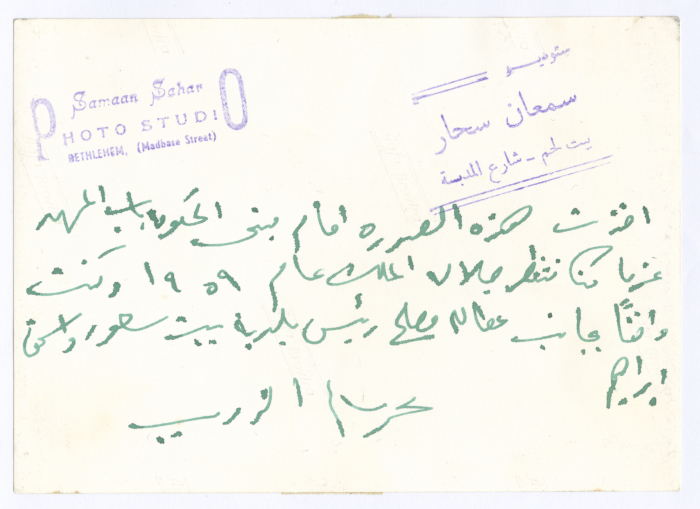 Samaan Sahar
PHOTO STUDIO
BETHLEHEM, (Madbase Street)
ستوديو
سمعان سحار
بيت لحم - شارع المدبسة
اخذت هذه الصوره امام مبنى الحكومه باب المهد
كنا ننتظر جلالة الملك عام ١٩٥٩ وكنت
واقفًا بجانب مصلح رئيس بلدية بيت ساحور
ابراهيم